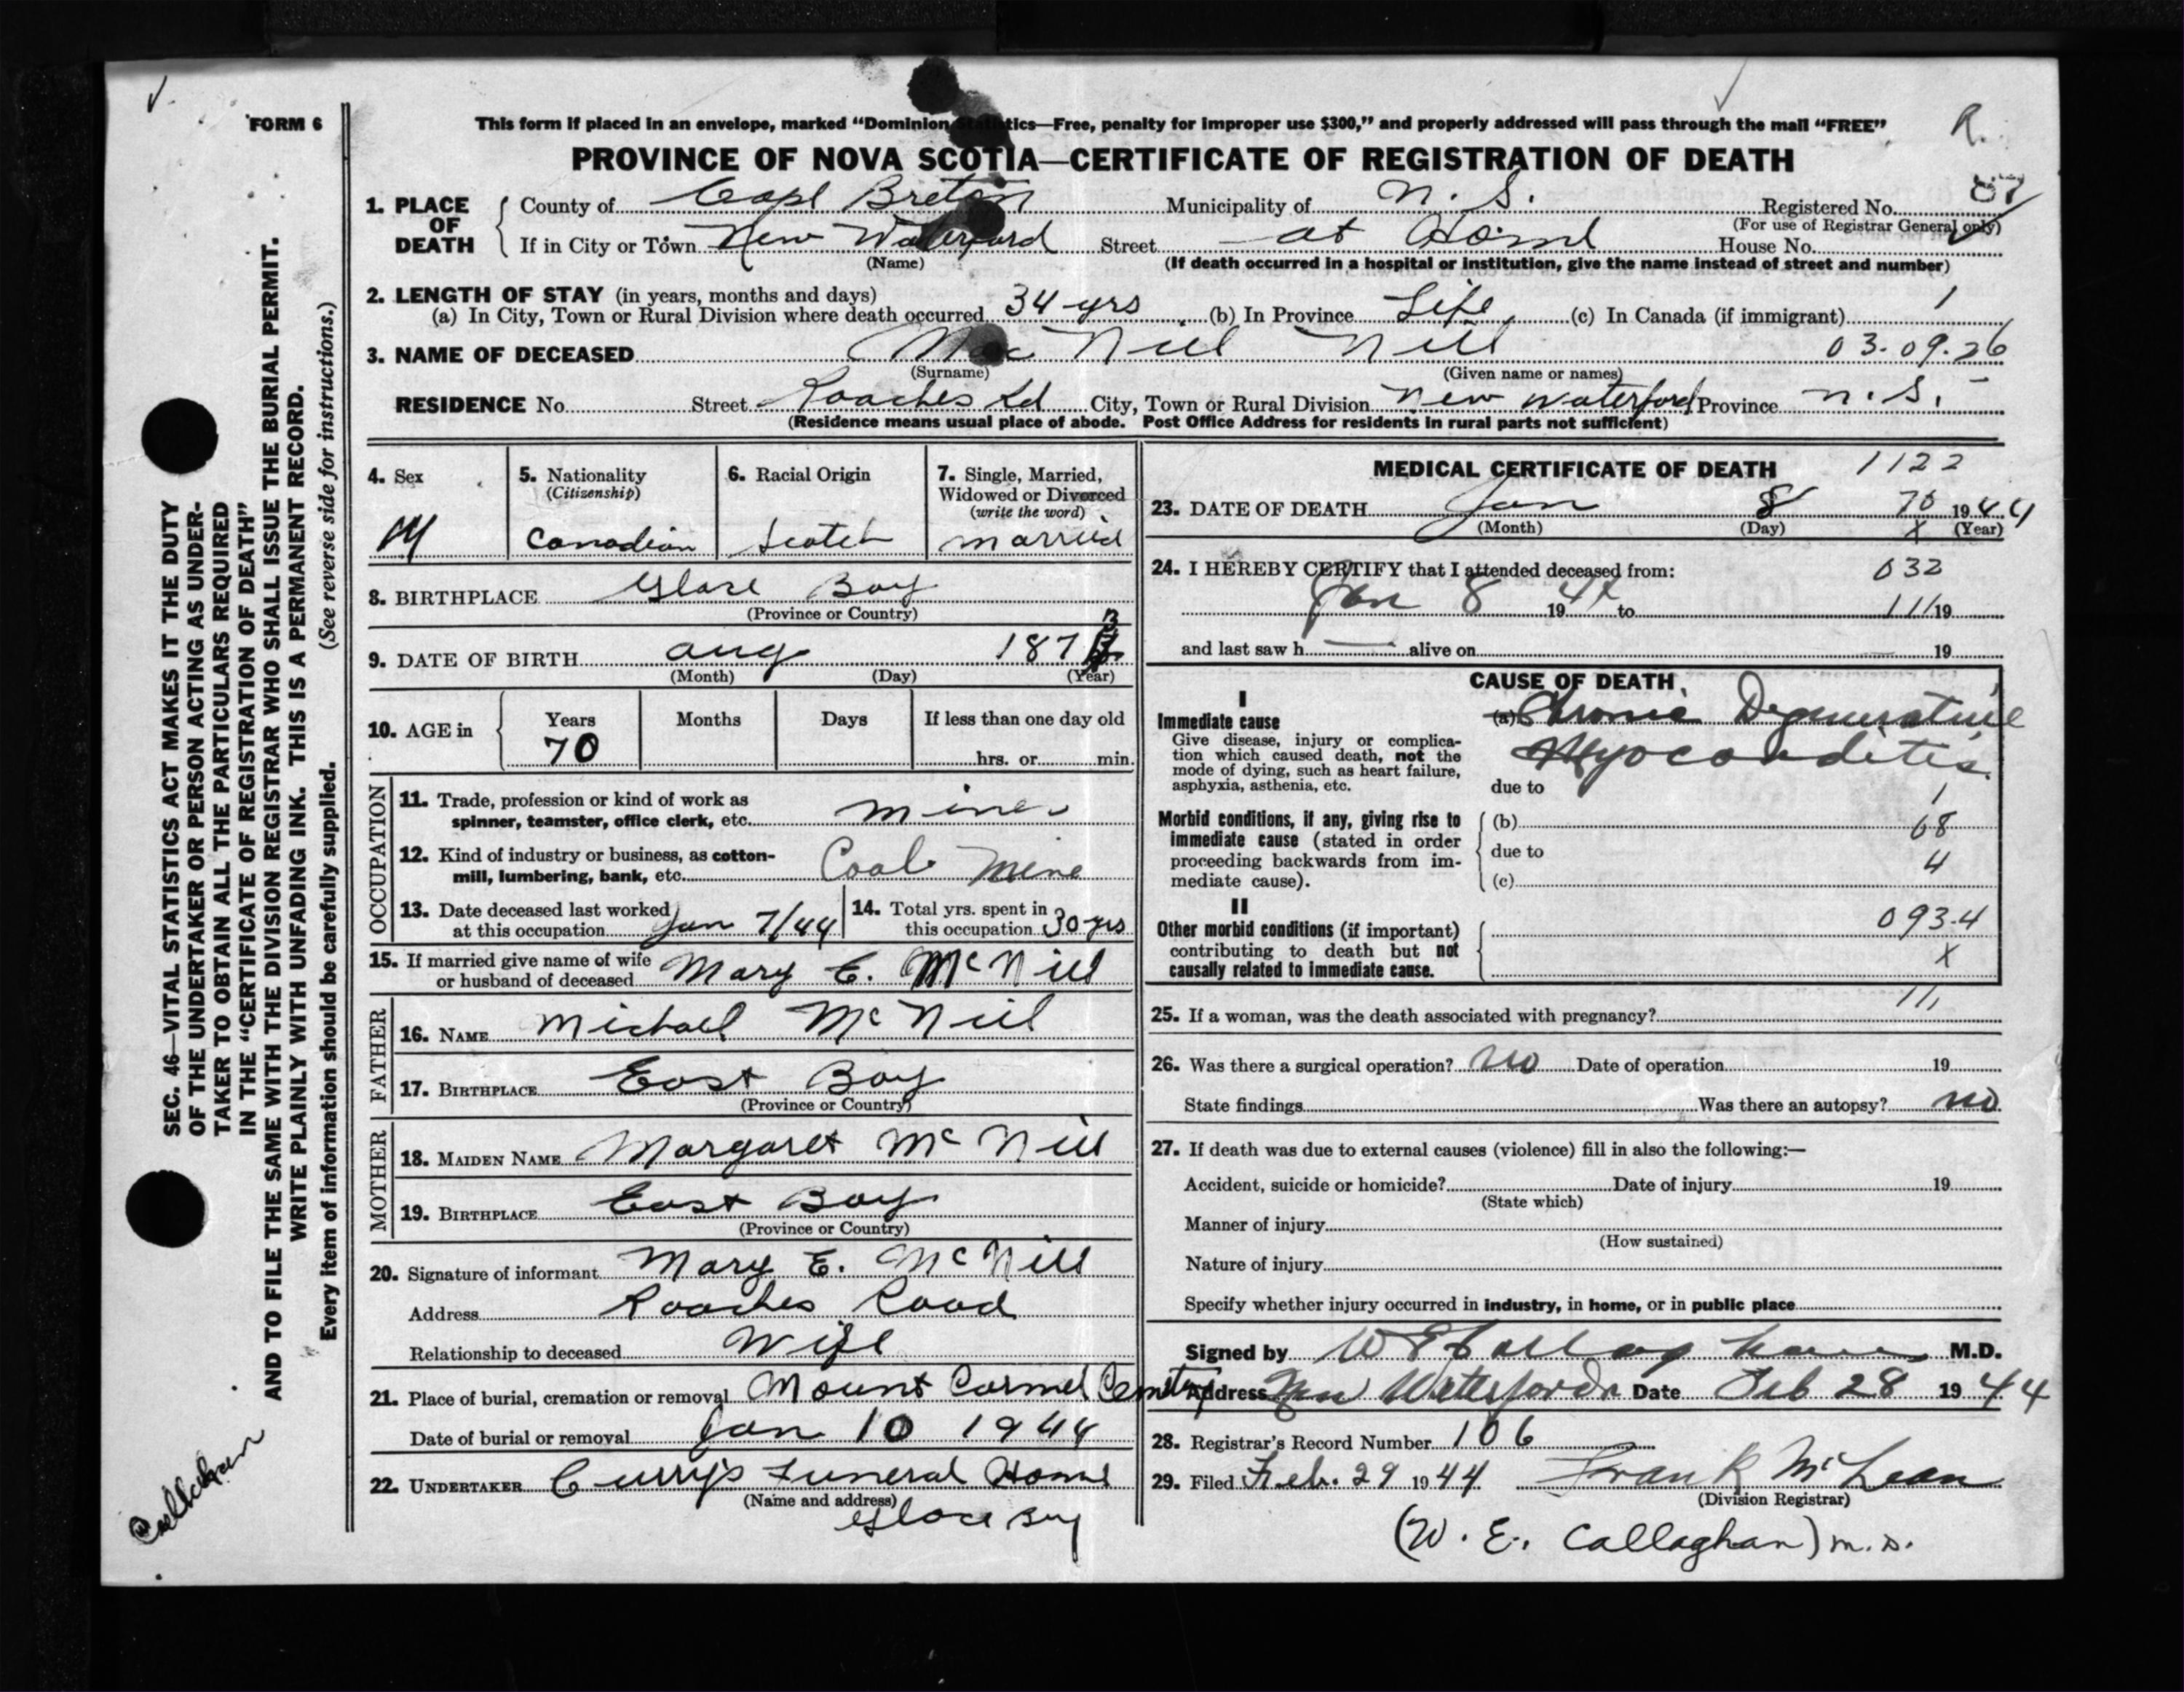 FORM 6
This form if placed in an envelope, marked "Dominion Statistics—Free, penalty for improper use $300," and properly addressed will pass through the mail "FREE"
R.
PROVINCE OF NOVA SCOTIA—CERTIFICATE OF REGISTRATION OF DEATH
1. PLACE OF DEATH
County of Cape Breton Municipality of N. S. Registered No.
(For use of Registrar General only)
If in City or Town New Waterford Street at Home House No.
(Name) (If death occurred in a hospital or institution, give the name instead of street and number)
2. LENGTH OF STAY (in years, months and days)
(a) In City, Town or Rural Division where death occurred 34 yrs (b) In Province Life (c) In Canada (if immigrant) 1
3. NAME OF DECEASED Mac Neil Neil 03.09.26
(Surname) (Given name or names)
RESIDENCE No. Street Roaches Rd City, Town or Rural Division New Waterford Province N.S.
(Residence means usual place of abode. Post Office Address for residents in rural parts not sufficient)
4. Sex
M
5. Nationality
(Citizenship)
Canadian
6. Racial Origin
Scotch
7. Single, Married,
Widowed or Divorced
(write the word)
married
8. BIRTHPLACE Glace Bay
(Province or Country)
9. DATE OF BIRTH Aug 1873
(Month) (Day) (Year)
10. AGE in
Years Months Days If less than one day old
70 hrs. or min.
OCCUPATION
11. Trade, profession or kind of work as
spinner, teamster, office clerk, etc. miner
12. Kind of industry or business, as cotton-
mill, lumbering, bank, etc. Coal Mine
13. Date deceased last worked
at this occupation Jan 7/44
14. Total yrs. spent in
this occupation 30 yrs
15. If married give name of wife
or husband of deceased Mary E. McNeil
FATHER
16. NAME Michael McNeil
17. BIRTHPLACE East Bay
(Province or Country)
MOTHER
18. MAIDEN NAME Margaret McNeil
19. BIRTHPLACE East Bay
(Province or Country)
20. Signature of informant Mary E. McNeil
Address Roaches Road
Relationship to deceased Wife
21. Place of burial, cremation or removal Mount Carmel Cemetery
Date of burial or removal Jan 10 1944
22. UNDERTAKER Curry's Funeral Home
(Name and address)
Glace Bay
MEDICAL CERTIFICATE OF DEATH 1122
23. DATE OF DEATH Jan 8 70 1944
(Month) (Day) X (Year)
24. I HEREBY CERTIFY that I attended deceased from: 032
Jan 8 1944 to 111 19
and last saw h alive on 19
CAUSE OF DEATH
I
Immediate cause
Give disease, injury or complica-
tion which caused death, not the
mode of dying, such as heart failure,
asphyxia, asthenia, etc.
(a) Chronic Degenerative
Myocarditis
due to
1
Morbid conditions, if any, giving rise to
immediate cause (stated in order
proceeding backwards from im-
mediate cause).
(b) 68
due to 4
(c)
II
Other morbid conditions (if important)
contributing to death but not
causally related to immediate cause.
093.4
X
25. If a woman, was the death associated with pregnancy?
26. Was there a surgical operation? no Date of operation 19
State findings Was there an autopsy? no
27. If death was due to external causes (violence) fill in also the following:—
Accident, suicide or homicide? Date of injury 19
(State which)
Manner of injury
(How sustained)
Nature of injury
Specify whether injury occurred in industry, in home, or in public place
Signed by W E Callaghan M.D.
Address New Waterford Date Feb 28 1944
28. Registrar's Record Number 106
29. Filed Feb. 29 1944 Frank McLean
(Division Registrar)
(W. E. Callaghan) M.D.
SEC. 46—VITAL STATISTICS ACT MAKES IT THE DUTY
OF THE UNDERTAKER OR PERSON ACTING AS UNDER-
TAKER TO OBTAIN ALL THE PARTICULARS REQUIRED
IN THE "CERTIFICATE OF REGISTRATION OF DEATH"
AND TO FILE THE SAME WITH THE DIVISION REGISTRAR WHO SHALL ISSUE THE BURIAL PERMIT.
WRITE PLAINLY WITH UNFADING INK. THIS IS A PERMANENT RECORD.
Every item of information should be carefully supplied. (See reverse side for instructions.)